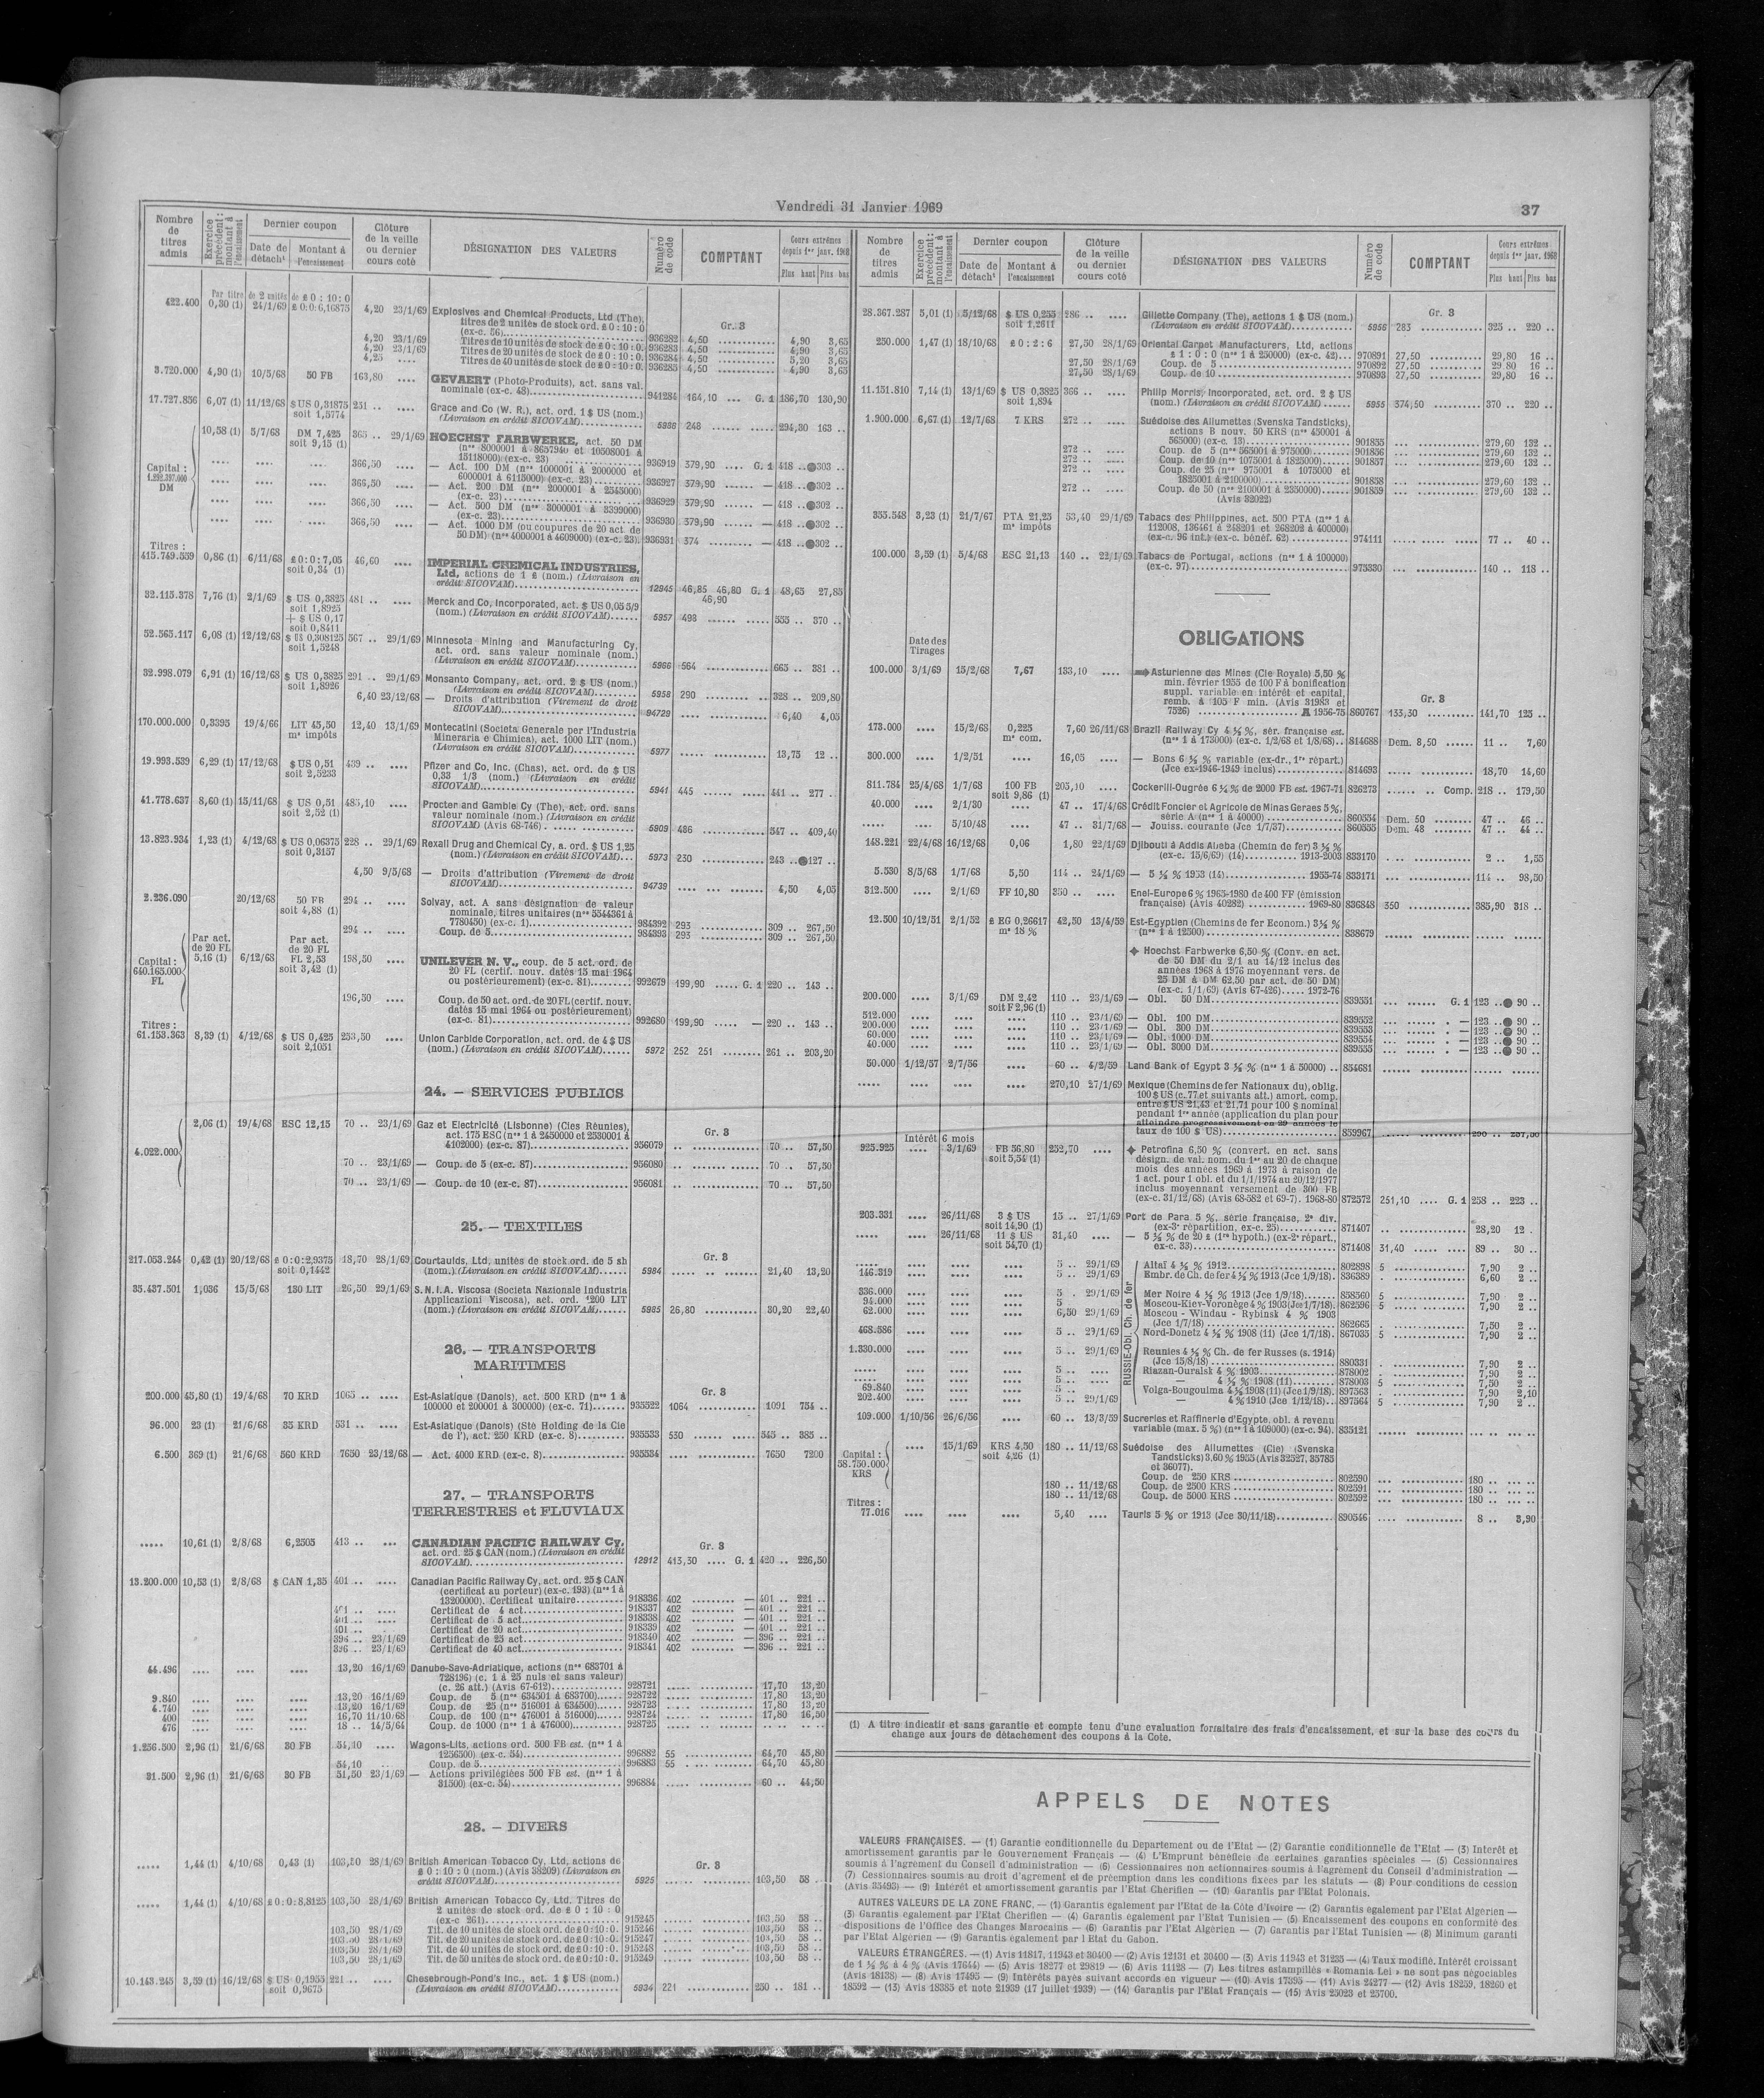 Vendredi 31 Janvier 1969
37
Nombre de titres admis
Exercice précédent : montant à l'encaissement
Dernier coupon
Date de détacht
Montant à l'encaissement
Clôture de la veille ou dernier cours coté
DÉSIGNATION DES VALEURS
Numéro de code
COMPTANT
Cours extrêmes depuis 1er janv. 1968
Plus haut Plus bas
Par titre de 2 unités de £ 0 : 10 : 0
422.400 0,30 (1) 24/1/69 £ 0:0:6,16875 4,20 23/1/69 Explosives and Chemical Products, Ltd (The),
titres de 2 unités de stock ord. £ 0 : 10 : 0 Gr. 3
(ex-c. 56)
4,20 23/1/69 Titres de 10 unités de stock de £ 0 : 10 : 0. 936282 4,50 4,90 3,65
4,20 23/1/69 Titres de 20 unités de stock de £ 0 : 10 : 0. 936283 4,50 4,90 3,65
4,25 .... Titres de 40 unités de stock de £ 0 : 10 : 0. 936284 4,50 5,20 3,65
936285 4,50 4,90 3,65
3.720.000 4,90 (1) 10/5/68 50 FB 163,80 .... GEVAERT (Photo-Produits), act. sans val.
nominale (ex-c. 48) 941284 164,10 ... G. 1 186,70 130,90
17.727.856 6,07 (1) 11/12/68 $ US 0,31875 251 .. .... Grace and Co (W. R.), act. ord. 1 $ US (nom.)
soit 1,5774 (Livraison en crédit SICOVAM) 5938 248 294,30 163 ..
10,58 (1) 5/7/68 DM 7,425 365 .. 29/1/69 HOECHST FARBWERKE, act. 50 DM
soit 9,15 (1) (nos 8000001 à 8657940 et 10508001 à
15118000) (ex-c. 23) 936919 379,90 .... G. 1 418 .. 303 ..
Capital : 1.292.397.000 DM
366,50 .... — Act. 100 DM (nos 1000001 à 2000000 et
6000001 à 6115000) (ex-c. 23) 936927 379,90 — 418 .. 302 ..
366,50 .... — Act. 200 DM (nos 2000001 à 2545000)
(ex-c. 23) 936929 379,90 — 418 .. 302 ..
366,50 .... — Act. 500 DM (nos 3000001 à 3399000)
(ex-c. 23) 936930 379,90 — 418 .. 302 ..
366,50 .... — Act. 1000 DM (ou coupures de 20 act. de
50 DM) (nos 4000001 à 4609000) (ex-c. 23). 936931 374 — 418 .. 302 ..
Titres :
415.749.559 0,86 (1) 6/11/68 £ 0:0:7,05 46,60 .... IMPERIAL CHEMICAL INDUSTRIES,
soit 0,34 (1) Ltd, actions de 1 £ (nom.) (Livraison en
crédit SICOVAM) 12945 46,85 46,80 G. 1 48,65 27,85
46,90
32.115.378 7,76 (1) 2/1/69 $ US 0,3825 481 .. .... Merck and Co, Incorporated, act. $ US 0,05 5/9
soit 1,8925 (nom.) (Livraison en crédit SICOVAM) 5957 498 555 .. 370 ..
+ $ US 0,17
soit 0,8411
52.565.117 6,08 (1) 12/12/68 $ US 0,308125 567 .. 29/1/69 Minnesota Mining and Manufacturing Cy,
soit 1,5248 act. ord. sans valeur nominale (nom.)
(Livraison en crédit SICOVAM) 5966 564 665 .. 381 ..
32.998.079 6,91 (1) 16/12/68 $ US 0,3825 291 .. 29/1/69 Monsanto Company, act. ord. 2 $ US (nom.)
soit 1,8926 (Livraison en crédit SICOVAM) 5958 290 328 .. 209,80
6,40 23/12/68 — Droits d'attribution (Virement de droit
SICOVAM) 94729 6,40 4,05
170.000.000 0,3395 19/4/66 LIT 45,50 12,40 13/1/69 Montecatini (Societa Generale per l'Industria
ms impôts Mineraria e Chimica), act. 1000 LIT (nom.)
(Livraison en crédit SICOVAM) 5977 13,75 12 ..
19.993.539 6,29 (1) 17/12/68 $ US 0,51 439 .. .... Pfizer and Co, Inc. (Chas), act. ord. de $ US
soit 2,5233 0,33 1/3 (nom.) (Livraison en crédit
SICOVAM) 5941 445 441 .. 277 ..
41.778.637 8,60 (1) 15/11/68 $ US 0,51 485,10 .... Procter and Gamble Cy (The), act. ord. sans
soit 2,52 (1) valeur nominale (nom.) (Livraison en crédit
SICOVAM) (Avis 68-746) 5909 486 547 .. 409,40
13.823.934 1,23 (1) 4/12/68 $ US 0,06375 228 .. 29/1/69 Rexall Drug and Chemical Cy, a. ord. $ US 1,25
soit 0,3157 (nom.) (Livraison en crédit SICOVAM) 5973 230 243 .. 127 ..
4,50 9/5/68 — Droits d'attribution (Virement de droit
SICOVAM) 94739 4,50 4,05
2.236.090 20/12/68 50 FB 294 .. .... Solvay, act. A sans désignation de valeur
soit 4,88 (1) nominale, titres unitaires (nos 5544361 à
7780450) (ex-c. 1) 984392 293 309 .. 267,50
294 .. .... Coup. de 5 984393 293 309 .. 267,50
Par act. de 20 FL Par act. de 20 FL
Capital : 640.165.000 FL
5,16 (1) 6/12/68 FL 2,53 198,50 .... UNILEVER N. V., coup. de 5 act. ord. de
soit 3,42 (1) 20 FL (certif. nouv. datés 15 mai 1964
ou postérieurement) (ex-c. 81) 992679 199,90 G. 1 220 .. 143 ..
196,50 .... Coup. de 50 act. ord. de 20 FL (certif. nouv.
datés 15 mai 1964 ou postérieurement)
(ex-c. 81) 992680 199,90 — 220 .. 143 ..
Titres :
61.153.363 8,39 (1) 4/12/68 $ US 0,425 253,50 .... Union Carbide Corporation, act. ord. de 4 $ US
soit 2,1051 (nom.) (Livraison en crédit SICOVAM) 5972 252 251 261 .. 203,20
24. — SERVICES PUBLICS
2,06 (1) 19/4/68 ESC 12,15 70 .. 23/1/69 Gaz et Electricité (Lisbonne) (Cies Réunies),
act. 175 ESC (nos 1 à 2450000 et 2530001 à Gr. 3
4102000) (ex-c. 87) 956079 70 .. 57,50
4.022.000
70 .. 23/1/69 — Coup. de 5 (ex-c. 87) 956080 70 .. 57,50
70 .. 23/1/69 — Coup. de 10 (ex-c. 87) 956081 70 .. 57,50
25. — TEXTILES
217.053.244 0,42 (1) 20/12/68 £ 0:0:2,9375 18,70 28/1/69 Courtaulds, Ltd, unités de stock ord. de 5 sh Gr. 3
soit 0,1442 (nom.) (Livraison en crédit SICOVAM) 5984 21,40 13,20
35.437.501 1,036 15/5/68 130 LIT 26,50 29/1/69 S.N.I.A. Viscosa (Societa Nazionale Industria
Applicazioni Viscosa), act. ord. 1200 LIT
(nom.) (Livraison en crédit SICOVAM) 5985 26,80 30,20 22,40
26. — TRANSPORTS
MARITIMES
200.000 45,80 (1) 19/4/68 70 KRD 1065 .. .... Est-Asiatique (Danois), act. 500 KRD (nos 1 à Gr. 3
100000 et 200001 à 300000) (ex-c. 71) 935522 1064 1091 754 ..
96.000 23 (1) 21/6/68 35 KRD 531 .. .... Est-Asiatique (Danois) (Sté Holding de la Cie
de l'), act. 250 KRD (ex-c. 8) 935533 530 545 .. 385 ..
6.500 369 (1) 21/6/68 560 KRD 7650 23/12/68 — Act. 4000 KRD (ex-c. 8) 935534 7650 7200
27. — TRANSPORTS
TERRESTRES et FLUVIAUX
..... 10,61 (1) 2/8/68 6,2505 413 .. ... CANADIAN PACIFIC RAILWAY Cy, Gr. 3
act. ord. 25 $ CAN (nom.) (Livraison en crédit
SICOVAM) 12912 413,30 .... G. 1 420 .. 226,50
13.200.000 10,53 (1) 2/8/68 $ CAN 1,35 401 .. .... Canadian Pacific Railway Cy, act. ord. 25 $ CAN
(certificat au porteur) (ex-c. 193) (nos 1 à
13200000). Certificat unitaire 918336 402 — 401 .. 221 ..
401 .. .... Certificat de 4 act. 918337 402 — 401 .. 221 ..
401 .. .... Certificat de 5 act. 918338 402 — 401 .. 221 ..
401 .. Certificat de 20 act. 918339 402 — 401 .. 221 ..
396 .. 23/1/69 Certificat de 25 act. 918340 402 — 396 .. 221 ..
396 .. 23/1/69 Certificat de 40 act. 918341 402 — 396 .. 221 ..
44.496 .... .... .... 13,20 16/1/69 Danube-Save-Adriatique, actions (nos 683701 à
728196) (c. 1 à 25 nuls et sans valeur)
(c. 26 att.) (Avis 67-612) 928721 17,70 13,20
9.840 .... .... .... 13,20 16/1/69 Coup. de 5 (nos 634501 à 683700) 928722 17,80 13,20
4.740 .... .... .... 13,20 16/1/69 Coup. de 25 (nos 516001 à 634500) 928723 17,80 13,20
400 .... .... .... 16,70 11/10/68 Coup. de 100 (nos 476001 à 516000) 928724 17,80 16,50
476 .... .... .... 18 .. 14/5/64 Coup. de 1000 (nos 1 à 476000) 928725
1.256.500 2,96 (1) 21/6/68 30 FB 54,10 .... Wagons-Lits, actions ord. 500 FB est. (nos 1 à
1256500) (ex-c. 54) 996882 55 64,70 45,80
54,10 Coup. de 5 996883 55 64,70 45,80
31.500 2,96 (1) 21/6/68 30 FB 51,50 23/1/69 — Actions privilégiées 500 FB est. (nos 1 à
31500) (ex-c. 54) 996884 60 .. 44,50
28. — DIVERS
..... 1,44 (1) 4/10/68 0,43 (1) 103,50 28/1/69 British American Tobacco Cy, Ltd, actions de Gr. 3
£ 0 : 10 : 0 (nom.) (Avis 38209) (Livraison en
crédit SICOVAM) 5925 103,50 58 ..
..... 1,44 (1) 4/10/68 £ 0:0:8,8125 103,50 28/1/69 British American Tobacco Cy, Ltd. Titres de
2 unités de stock ord. de £ 0 : 10 : 0
(ex-c. 261) 915245 103,50 58 ..
103,50 28/1/69 Tit. de 10 unités de stock ord. de £ 0:10:0. 915246 103,50 58 ..
103,50 28/1/69 Tit. de 20 unités de stock ord. de £ 0:10:0. 915247 103,50 58 ..
103,50 28/1/69 Tit. de 40 unités de stock ord. de £ 0:10:0. 915248 103,50 58 ..
103,50 28/1/69 Tit. de 50 unités de stock ord. de £ 0:10:0. 915249 103,50 58 ..
10.143.245 3,39 (1) 16/12/68 $ US 0,1955 221 .. .... Chesebrough-Pond's Inc., act. 1 $ US (nom.)
soit 0,9675 (Livraison en crédit SICOVAM) 5934 221 250 .. 181 ..
Nombre de titres admis
Exercice précédent : montant à l'encaissement
Dernier coupon
Date de détacht
Montant à l'encaissement
Clôture de la veille ou dernier cours coté
DÉSIGNATION DES VALEURS
Numéro de code
COMPTANT
Cours extrêmes depuis 1er janv. 1968
Plus haut Plus bas
28.367.287 5,01 (1) 5/12/68 $ US 0,255 286 .. .... Gillette Company (The), actions 1 $ US (nom.) Gr. 3
soit 1,2611 (Livraison en crédit SICOVAM) 5956 283 325 .. 220 ..
250.000 1,47 (1) 18/10/68 £ 0 : 2 : 6 27,50 28/1/69 Oriental Carpet Manufacturers, Ltd, actions
£ 1 : 0 : 0 (nos 1 à 250000) (ex-c. 42) 970891 27,50 29,80 16 ..
27,50 28/1/69 Coup. de 5 970892 27,50 29,80 16 ..
27,50 28/1/69 Coup. de 10 970893 27,50 29,80 16 ..
11.151.810 7,14 (1) 13/1/69 $ US 0,3825 366 .. .... Philip Morris, Incorporated, act. ord. 2 $ US
soit 1,894 (nom.) (Livraison en crédit SICOVAM) 5955 374,50 370 .. 220 ..
1.900.000 6,67 (1) 12/7/68 7 KRS 272 .. .... Suédoise des Allumettes (Svenska Tandsticks),
actions B nouv. 50 KRS (nos 450001 à
565000) (ex-c. 13) 901855 279,60 132 ..
272 .. .... Coup. de 5 (nos 565001 à 975000) 901856 279,60 132 ..
272 .. .... Coup. de 10 (nos 1075001 à 1825000) 901857 279,60 132 ..
272 .. .... Coup. de 25 (nos 975001 à 1075000 et
1825001 à 2100000) 901858 279,60 132 ..
272 .. .... Coup. de 50 (nos 2100001 à 2350000) 901859 279,60 132 ..
(Avis 32022)
355.548 3,23 (1) 21/7/67 PTA 21,25 53,40 29/1/69 Tabacs des Philippines, act. 500 PTA (nos 1 à
ms impôts 112008, 136461 à 248201 et 268202 à 400000)
(ex-c. 96 int.) (ex-c. bénéf. 62) 974111 77 .. 40 ..
100.000 3,59 (1) 5/4/68 ESC 21,13 140 .. 22/1/69 Tabacs de Portugal, actions (nos 1 à 100000)
(ex-c. 97) 975330 140 .. 118 ..
OBLIGATIONS
Date des Tirages
100.000 3/1/69 15/2/68 7,67 133,10 .... Asturienne des Mines (Cie Royale) 5,50 %
min. février 1955 de 100 F à bonification
suppl. variable en intérêt et capital,
remb. à 105 F min. (Avis 31983 et Gr. 3
7526) A 1956-75 860767 133,30 141,70 125 ..
173.000 .... 15/2/68 0,225 7,60 26/11/68 Brazil Railway Cy 4 ½ %, sér. française est.
ms com. (nos 1 à 173000) (ex-c. 1/2/68 et 1/8/68) 814688 Dem. 8,50 11 .. 7,60
300.000 .... 1/2/51 16,05 .... — Bons 6 ½ % variable (ex-dr., 1re répart.)
(Jce ex-1946-1949 inclus) 814693 18,70 14,60
811.784 25/4/68 1/7/68 100 FB 205,10 .... Cockerill-Ougrée 6 ½ % de 2000 FB est. 1967-71 826273 Comp. 218 .. 179,50
soit 9,86 (1)
40.000 .... 2/1/30 .... 47 .. 17/4/68 Crédit Foncier et Agricole de Minas Geraes 5 %,
série A (nos 1 à 40000) 860554 Dem. 50 47 .. 46 ..
..... 5/10/48 .... 47 .. 31/7/68 — Jouiss. courante (Jce 1/7/37) 860555 Dem. 48 47 .. 44 ..
148.221 22/4/68 16/12/68 0,06 1,80 22/1/69 Djibouti à Addis Abeba (Chemin de fer) 3 ½ %
(ex-c. 15/6/69) (14) 1913-2003 833170 2 .. 1,55
5.530 8/5/68 1/7/68 5,50 114 .. 24/1/69 — 5 ½ % 1953 (14) 1955-74 833171 114 .. 98,50
312.500 .... 2/1/69 FF 10,80 350 .. .... Enel-Europe 6 % 1965-1980 de 400 FF (émission
française) (Avis 40282) 1969-80 836848 350 385,90 318 ..
12.500 10/12/51 2/1/52 £ EG 0,26617 42,50 13/4/59 Est-Egyptien (Chemins de fer Econom.) 3 ½ %
ms 18 % (nos 1 à 12500) 838679
Hoechst Farbwerke 6,50 % (Conv. en act.
de 50 DM du 2/1 au 14/12 inclus des
années 1968 à 1976 moyennant vers. de
25 DM à DM 62,50 par act. de 50 DM)
(ex-c. 1/1/69) (Avis 67-426) 1972-76
200.000 .... 3/1/69 DM 2,42 110 .. 23/1/69 — Obl. 50 DM 839551 G. 1 123 .. 90 ..
soit F 2,96 (1)
512.000 .... .... .... 110 .. 23/1/69 — Obl. 100 DM 839552 — 123 .. 90 ..
200.000 .... .... .... 110 .. 23/1/69 — Obl. 300 DM 839553 — 123 .. 90 ..
60.000 .... .... .... 110 .. 23/1/69 — Obl. 1000 DM 839554 — 123 .. 90 ..
40.000 .... .... .... 110 .. 23/1/69 — Obl. 3000 DM 839555 — 123 .. 90 ..
50.000 1/12/57 2/7/56 .... 60 .. 4/2/59 Land Bank of Egypt 3 ½ % (nos 1 à 50000) 854681
..... .... .... .... 270,10 27/1/69 Mexique (Chemins de fer Nationaux du), oblig.
100 $ US (c. 77 et suivants att.) amort. comp.
entre $ US 21,43 et 21,71 pour 100 $ nominal
pendant 1re année (application du plan pour
atteindre progressivement en 29 années le
taux de 100 $ US) 859967 290 .. 257,50
Intérêt 6 mois
925.925 .... 3/1/69 FB 56,80 252,70 .... Petrofina 6,50 % (convert. en act. sans
soit 5,54 (1) désign. de val. nom. du 1er au 20 de chaque
mois des années 1969 à 1973 à raison de
1 act. pour 1 obl. et du 1/1/1974 au 20/12/1977
inclus moyennant versement de 300 FB
(ex-c. 31/12/68) (Avis 68-582 et 69-7). 1968-80 872572 251,10 .... G. 1 258 .. 223 ..
203.331 .... 26/11/68 3 $ US 15 .. 27/1/69 Port de Para 5 %, série française, 2e div.
soit 14,90 (1) (ex-3e répartition, ex-c. 25) 871407 28,20 12 .
..... 26/11/68 11 $ US 31,40 .... — 5 ½ % de 20 £ (1re hypoth.) (ex-2e répart.,
soit 54,70 (1) ex-c. 33) 871408 31,40 89 .. 30 ..
RUSSIE-Obl. Ch. de fer
.... .... .... 5 .. 29/1/69 Altaï 4 ½ % 1912 802898 5 7,90 2 ..
146.319 .... .... .... 5 .. 29/1/69 Embr. de Ch. de fer 4 ½ % 1913 (Jce 1/9/18). 836389 6,60 2 ..
336.000 .... .... .... 5 . 29/1/69 Mer Noire 4 ½ % 1913 (Jce 1/9/18) 858560 5 7,90 2 ..
94.000 .... .... .... 5 Moscou-Kiev-Voronège 4 % 1903 (Jce 1/7/18). 862596 5 7,90 2 ..
62.000 .... .... .... 6,50 29/1/69 Moscou - Windau - Rybinsk 4 % 1903
(Jce 1/7/18) 862665 7,50 2 ..
468.586 .... .... .... 5 .. 29/1/69 Nord-Donetz 4 ½ % 1908 (11) (Jce 1/7/18). 867035 5 7,90 2 ..
1.330.000 .... .... .... 5 .. 29/1/69 Reunies 4 ½ % Ch. de fer Russes (s. 1914)
(Jce 15/8/18) 880331 7,90 2 ..
..... .... .... .... 5 .. .... Riazan-Ouralsk 4 % 1903 878002 7,90 2 ..
..... .... .... .... 5 .. .... — 4 ½ % 1908 (11) 878003 5 7,50 2 ..
69.840 .... .... .... 5 .. Volga-Bougoulma 4 ½ 1908 (11) (Jce 1/9/18). 897563 7,90 2,10
202.400 .... .... .... 5 .. 29/1/69 — 4 % 1910 (Jce 1/12/18) 897564 5 7,90 2 ..
109.000 1/10/56 26/6/56 .... 60 .. 13/3/59 Sucreries et Raffinerie d'Egypte, obl. à revenu
variable (max. 5 %) (nos 1 à 109000) (ex-c. 94). 835121
Capital : 58.750.000 KRS
.... 15/1/69 KRS 4,50 180 .. 11/12/68 Suédoise des Allumettes (Cie) (Svenska
soit 4,26 (1) Tandsticks) 3,60 % 1955 (Avis 32527, 35785
et 36077).
Coup. de 250 KRS 802590 180
180 .. 11/12/68 Coup. de 2500 KRS 802591 180
180 .. 11/12/68 Coup. de 5000 KRS 802592 180
Titres :
77.016 .... .... .... 5,40 .... Tauris 5 % or 1913 (Jce 30/11/18) 890546 8 .. 3,90
(1) A titre indicatif et sans garantie et compte tenu d'une evaluation forfaitaire des frais d'encaissement, et sur la base des cours du
change aux jours de détachement des coupons à la Cote.
APPELS DE NOTES
VALEURS FRANÇAISES. — (1) Garantie conditionnelle du Departement ou de l'Etat — (2) Garantie conditionnelle de l'Etat — (3) Interêt et
amortissement garantis par le Gouvernement Français — (4) L'Emprunt bénéficie de certaines garanties spéciales — (5) Cessionnaires
soumis à l'agrément du Conseil d'administration — (6) Cessionnaires non actionnaires soumis à l'agrément du Conseil d'administration —
(7) Cessionnaires soumis au droit d'agrement et de préemption dans les conditions fixées par les statuts — (8) Pour conditions de cession
(Avis 35493) — (9) Intérêt et amortissement garantis par l'Etat Cherifien — (10) Garantis par l'Etat Polonais.
AUTRES VALEURS DE LA ZONE FRANC. — (1) Garantis également par l'Etat de la Côte d'Ivoire — (2) Garantis également par l'Etat Algérien —
(3) Garantis egalement par l'Etat Cherifien — (4) Garantis également par l'Etat Tunisien — (5) Encaissement des coupons en conformité des
dispositions de l'Office des Changes Marocains — (6) Garantis par l'Etat Algérien — (7) Garantis par l'Etat Tunisien — (8) Minimum garanti
par l'Etat Algérien — (9) Garantis également par l'Etat du Gabon.
VALEURS ÉTRANGÉRES. — (1) Avis 11817, 11943 et 30400 — (2) Avis 12131 et 30400 — (3) Avis 11943 et 31235 — (4) Taux modifié. Intérêt croissant
de 1 ½ % à 4 % (Avis 17644) — (5) Avis 18277 et 29819 — (6) Avis 11128 — (7) Les titres estampillés « Romania Lei » ne sont pas négociables
(Avis 18138) — (8) Avis 17495 — (9) Intérêts payés suivant accords en vigueur — (10) Avis 17395 — (11) Avis 24277 — (12) Avis 18259, 18260 et
18592 — (13) Avis 18385 et note 21939 (17 juillet 1939) — (14) Garantis par l'Etat Français — (15) Avis 25023 et 25700.